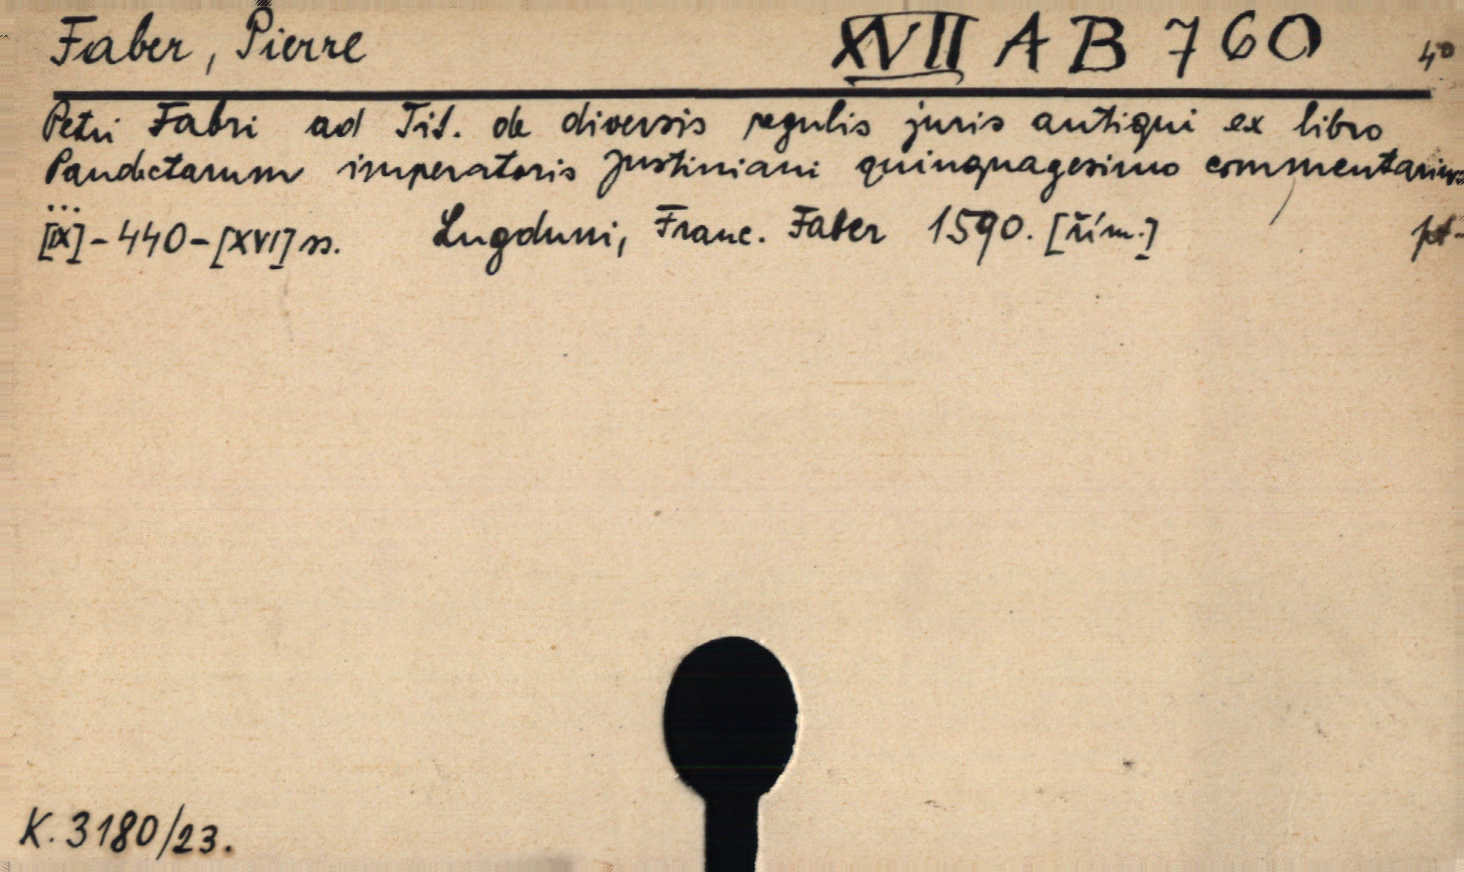 Faber, Pierre XVII A B 760 4°
Petri Fabri ad Tit. de diversis regulis juris antiqui ex libro
Pandectarum imperatoris Justiniani quinquagesimo commentarius
...
[IX]-440-[XVI] ss. Lugduni, Franc. Faber 1590. [řím.] pt.
K. 3180/23.